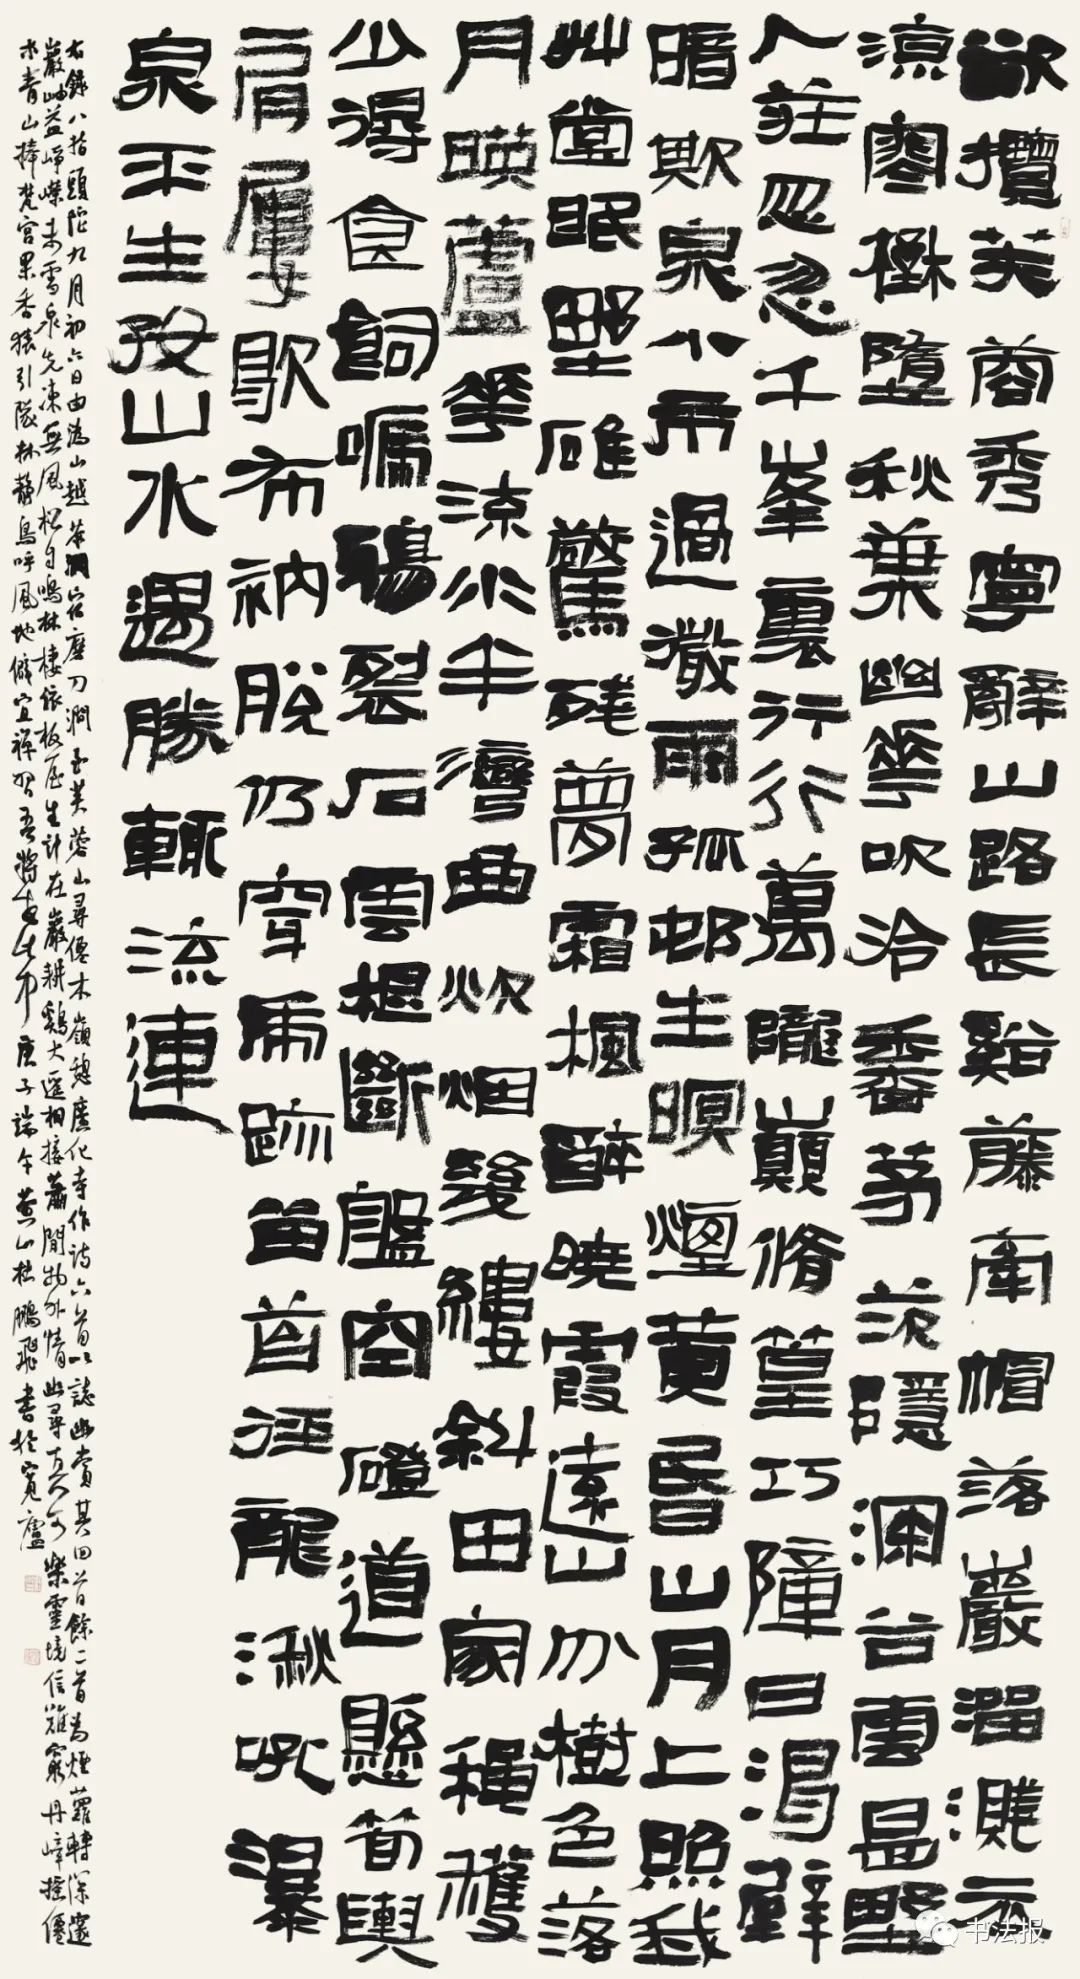 欲攬芙蓉秀寧辭山路長谿藤牽帽落巖溜濺衣
涼寥槲墮秋葉幽華吹冷香茅茨隱深谷雲是野
人莊忽忽千峯裏行行萬隴巔脩篁巧障日渴壑
暗欺泉小市過微雨孤邨生暝煙黃昏山月上照我
艸堂眠野碓驚殘夢霜楓醉曉霞遠山分樹色落
月映蘆華流水半灣曲炊烟幾縷斜田家種穫
少得食飼啼鴉裂石雲根斷盤空磴道懸筍輿
肩屢歇布衲脫仍穿虎跡苗徑龍湫吼瀑
泉平生孜山水遇勝輒流連
右錄八指頭陀九月初六日由溈山越茶洞山磨刀澗至芙蓉山尋僊木嶺憩廣化寺作詩六首以誌幽賞其四首餘二首為煙蘿轉深邃
巖岫益崢嶸未雪泉先凍無風松自鳴林棲依板屋生計在巖耕鷄犬遙相接蕭閒物外情幽尋真可樂靈境信難窮丹嶂搖僊
木青山捧梵宮果香猿引隊林靜鳥呼風地僻宜禪習吾將老此中庚子端午黃山杜鵬飛書於寬廬
书法报